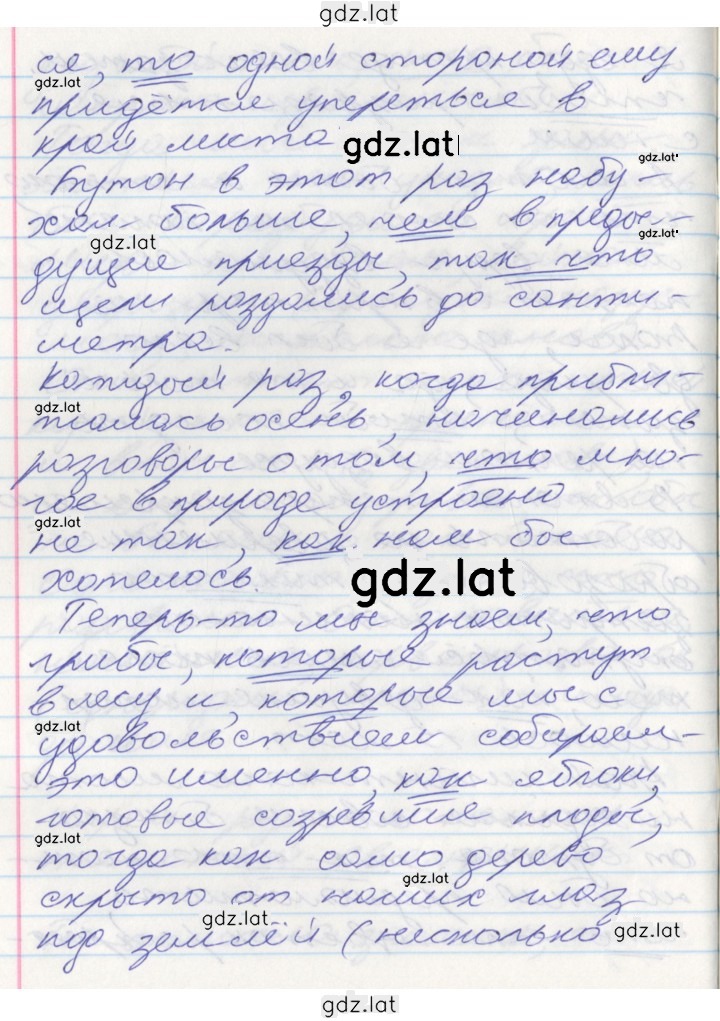 gdz.lat
ся, то одной стороной ему
gdz.lat
придётся упереться в
край листа.
gdz.lat
Бутон в этот раз набу-
gdz.lat
хал больше, чем в преды-
gdz.lat
gdz.lat
дущие приезды, так что
щели раздались до санти-
метра.
Каждый раз, когда прибли-
gdz.lat
жалась осень, начинались
разговоры о том, что мно-
гое в природе устроено
gdz.lat
не так, как нам бы
хотелось.
gdz.lat
Теперь-то мы знаем, что
грибы, которые растут
в лесу и, которые мы с
gdz.lat
удовольствием собираем-
это именно, как яблоки,
готовые созревшие плоды,
gdz.lat
тогда как само дерево
gdz.lat
скрыто от наших глаз
gdz.lat
под землёй (несколько
gdz.lat
gdz.lat